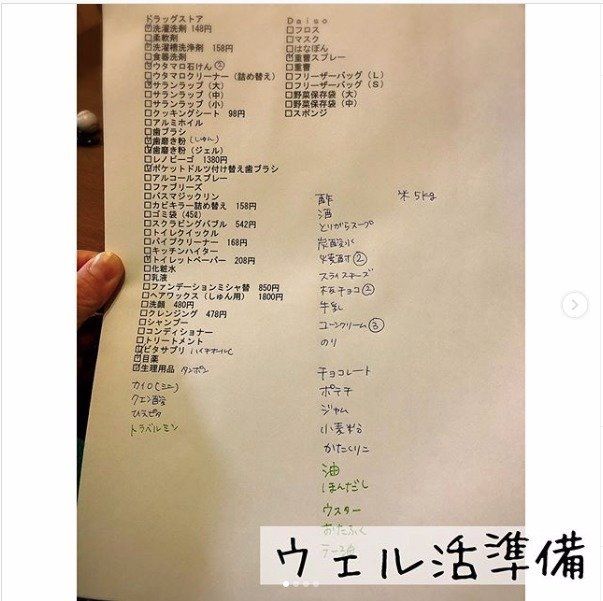 ドラッグストア
☑洗濯洗剤 148円
□柔軟剤
☑洗濯槽洗浄剤 158円
□食器洗剤
☑ウタマロ石けん②
□ウタマロクリーナー(詰め替え)
□サランラップ(大)
□サランラップ(中)
□サランラップ(小)
□クッキングシート 98円
□アルミホイル
□歯ブラシ
☑歯磨き粉(しゅん)
☑歯磨き粉(ジェル)
□レノビーゴ 1380円
☑ポケットドルツ付け替え歯ブラシ
□アルコールスプレー
□ファブリーズ
□バスマジックリン
□カビキラー詰め替え 158円
□ゴミ袋(45ℓ)
□スクラビングバブル 542円
□トイレクイックル
□パイプクリーナー 168円
□キッチンハイター
☑トイレットペーパー 208円
□化粧水
□乳液
□ファンデーションミシャ替 850円
□ヘアワックス(しゅん用) 1800円
□洗顔 480円
□クレンジング 478円
□シャンプー
□コンディショナー
□トリートメント
☑ビタサプリ ハイチオールC
☑目薬
☑生理用品 タンポン
カイロ(ミニ)
クエン酸
ひえピタ
トラベルミン
Daiso
□フロス
□マスク
□はなぽん
☑重曹スプレー
□重曹
□フリーザーバッグ(L)
□フリーザーバッグ(S)
□野菜保存袋(大)
□野菜保存袋(中)
□スポンジ
酢 米5kg
酒
とりがらスープ
炭酸水
焼酎②
スライスチーズ
板チョコ②
牛乳
コーンクリーム③
のり
チョコレート
ポテチ
ジャム
小麦粉
かたくりこ
油
ほんだし
ウスター
おたふく
ウェル活準備